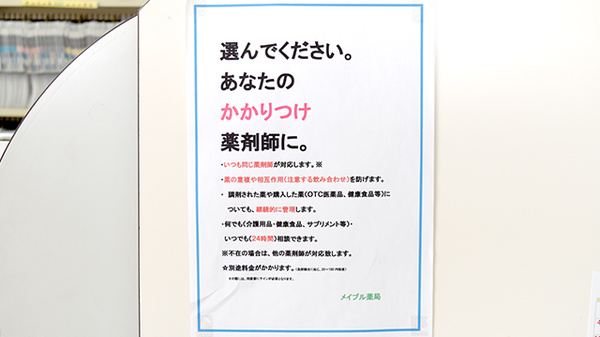 選んでください。
あなたの
かかりつけ
薬剤師に。
・いつも同じ薬剤師が対応します。※
・薬の重複や相互作用(注意する飲み合わせ)を防げます。
・ 調剤された薬や購入した薬(OTC医薬品、健康食品等)に
ついても、継続的に管理します。
・何でも(介護用品・健康食品、サプリメント等)・
いつでも(24時間)相談できます。
※不在の場合は、他の薬剤師が対応致します。
☆別途料金がかかります。
メイプル薬局